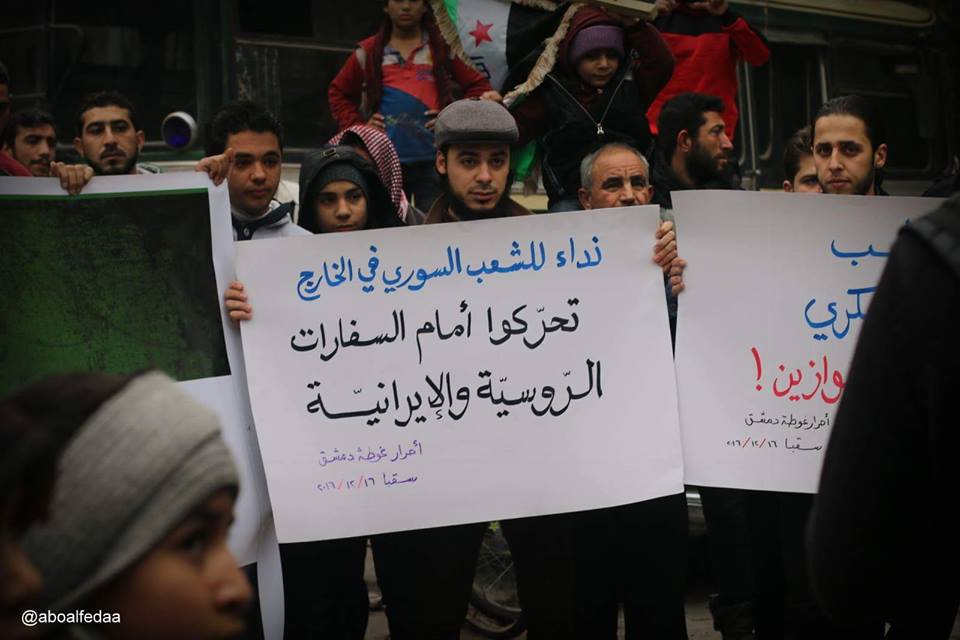 نداء للشعب السوري في الخارج
تحرّكوا أمام السفارات
الرّوسيّة والإيرانيّة
أحرار غوطة دمشق
سقبا ٢٠١٦/١٢/١٦
وازين!
أحرار غوطة دمشق
سقبا ٢٠١٦/١٢/١٦
@aboalfedaa